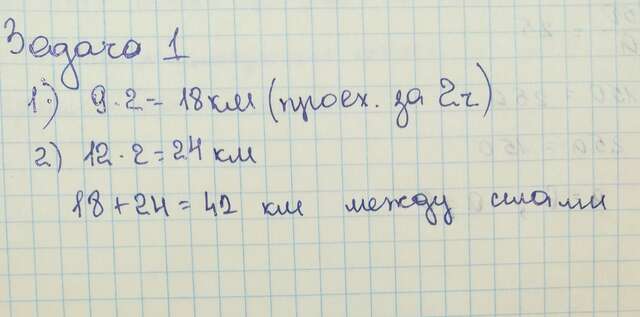 Задача 1
1) 9·2 = 18 км (проех. за 2ч)
2) 12·2 = 24 км
18 + 24 = 42 км между сёлами